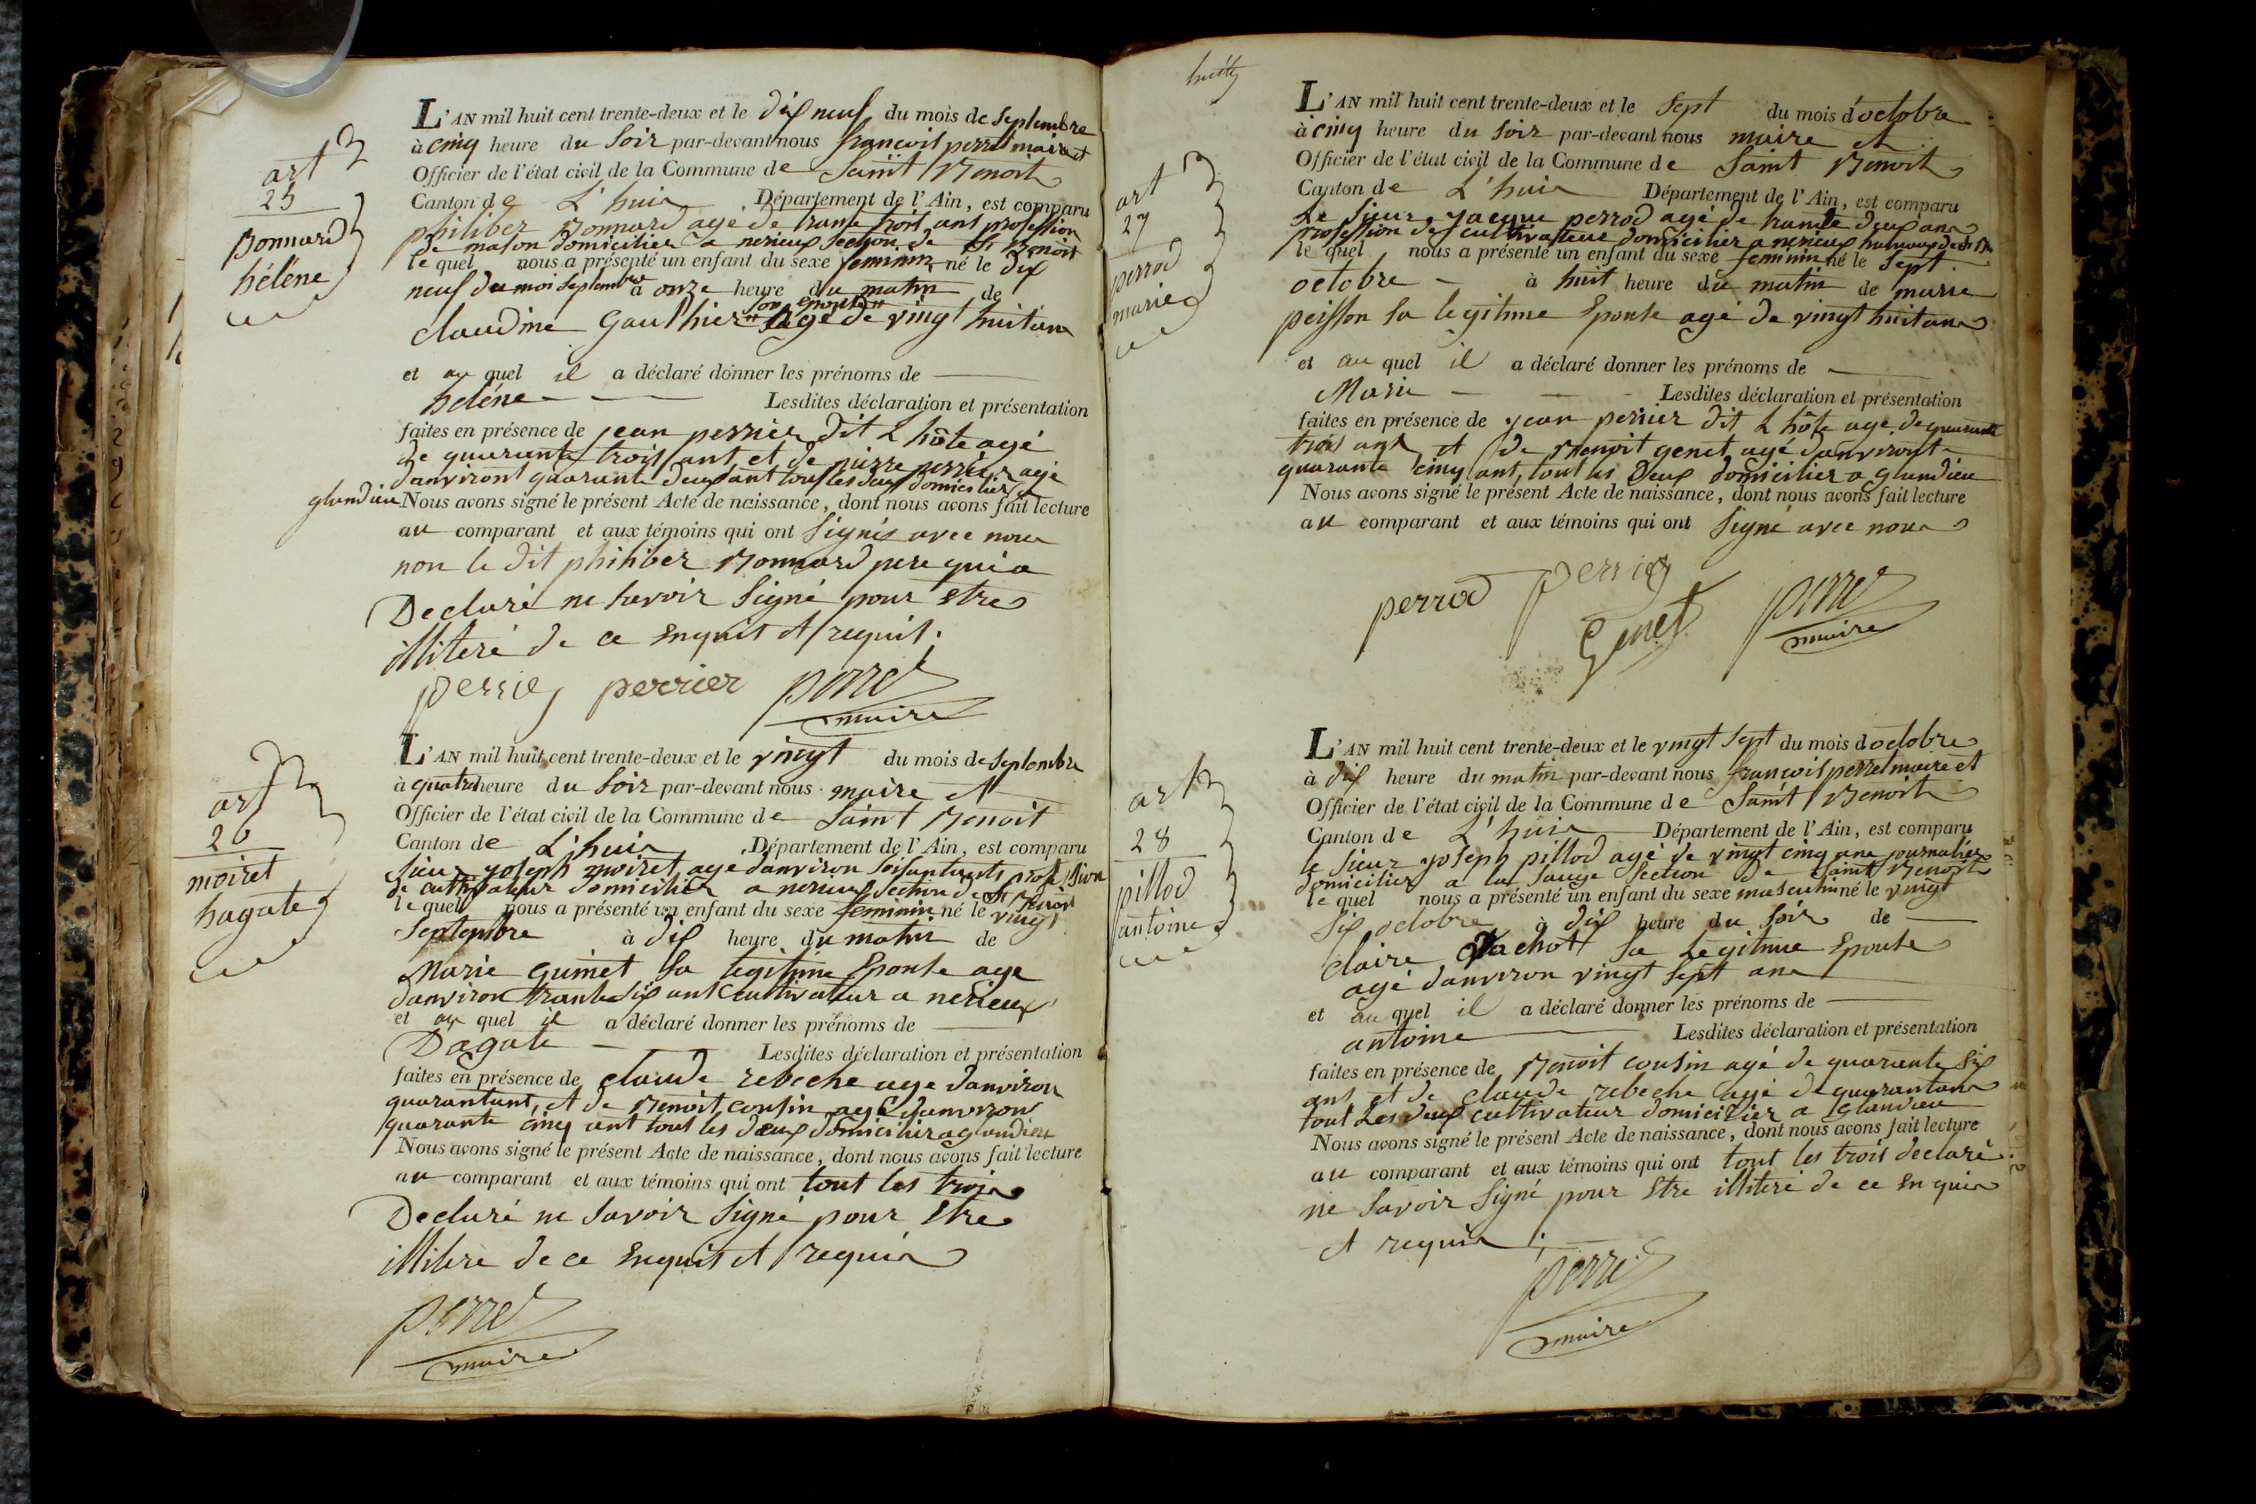 art
25
Bonnard
hélène
L'AN mil huit cent trente-deux et le dix neuf du mois de septembre
à cinq heure du soir par-devant nous francois perret maire et
Officier de l'état civil de la Commune de Saint Benoit
Canton de L'huis Département de l'Ain, est comparu
philiber Bonnard agé de trante trois ans profession
de mason domicilier a nerieux section de St Benoit
le quel nous a présenté un enfant du sexe feminin né le dix
neuf du moi septembre à onze heure du matin de
claudine Gauthier son epouse agé de vingt huit ans
et au quel il a déclaré donner les prénoms de
héléne Lesdites déclaration et présentation
faites en présence de jean perrier dit L hôte agé
de quarante trois ant et de pierre perrier agé
danviront quarante deux ant tous les deux domicilier a
glandieu Nous avons signé le présent Acte de naissance, dont nous avons fait lecture
au comparant et aux témoins qui ont signés avec nous
non le dit philiber Bonnard pere qui a
Declaré ne savoir signé pour Etre
illiteré de ce Enquit et requit.
perrier perrier perret
maire
art
26
moiret
hagate
L'AN mil huit cent trente-deux et le vingt du mois de septembre
à quatre heure du soir par-devant nous maire et
Officier de l'état civil de la Commune de Saint Benoit
Canton de L'huis Département de l'Ain, est comparu
sieur yoseph moiret age danviron soisante ants profession
de cultivateur domicilier a nerieux section de St Benoit
le quel nous a présenté un enfant du sexe feminin né le vingt
septembre à dix heure du matin de
Marie guinet sa legitime Epouse age
danviron trante six ant cultivateur a nerieux
et au quel il a déclaré donner les prénoms de
Dagate Lesdites déclaration et présentation
faites en présence de claude rebeche age danviron
quarantant, et de Benoit cousin agé danviron
quarante cinq ant tout les deux domicilier a glandieu
Nous avons signé le présent Acte de naissance, dont nous avons fait lecture
au comparant et aux témoins qui ont tout les trois
Declaré ne savoir signé pour Etre
illiteré de ce Enquit et requis
perret
maire
art
27
perrod
marie
L'AN mil huit cent trente-deux et le sept du mois d'octobre
à cinq heure du soir par-devant nous maire et
Officier de l'état civil de la Commune de Saint Benoit
Canton de L'huis Département de l'Ain, est comparu
Le sieur yacque perrod agé de trante deux ans
profession de cultivateur domicilier a nerieux hameaux de St Bt
le quel nous a présenté un enfant du sexe feminin né le sept
octobre à huit heure du matin de marie
peisson sa legitime Epouse agé de vingt huit ans
et au quel il a déclaré donner les prénoms de
Marie Lesdites déclaration et présentation
faites en présence de yean perrier dit L hôte age de quarante
trois ant et de Benoit genet agé danviront
quarante cinq ant, tout les Deux domicilier a glandieu
Nous avons signé le présent Acte de naissance, dont nous avons fait lecture
au comparant et aux témoins qui ont signé avec nous
perrod perrier
Genet perret
maire
art
28
pillod
antoine
L'AN mil huit cent trente-deux et le vingt sept du mois d octobre
à dix heure du matin par-devant nous francois perret maire et
Officier de l'état civil de la Commune de Saint Benoit
Canton de L'huis Département de l'Ain, est comparu
le sieur yoseph pillod agé de vingt cinq ans journalier
domicilier a la sauge section de Saint Benoit
le quel nous a présenté un enfant du sexe masculin né le vingt
six octobre à dix heure du soir de
claire Vachot sa Legitime Epouse
agé danviron vingt sept ans
et au quel il a déclaré donner les prénoms de
antoine Lesdites déclaration et présentation
faites en présence de Benoit cousin agé de quarante six
ans et de claude rebeche agé de quarantans
tout Les deux cultivateur domicilier a glandieu
Nous avons signé le présent Acte de naissance, dont nous avons fait lecture
au comparant et aux témoins qui ont tout les trois declaré
ne savoir signé pour Etre illiteré de ce Enquis
et requis.
perret
maire